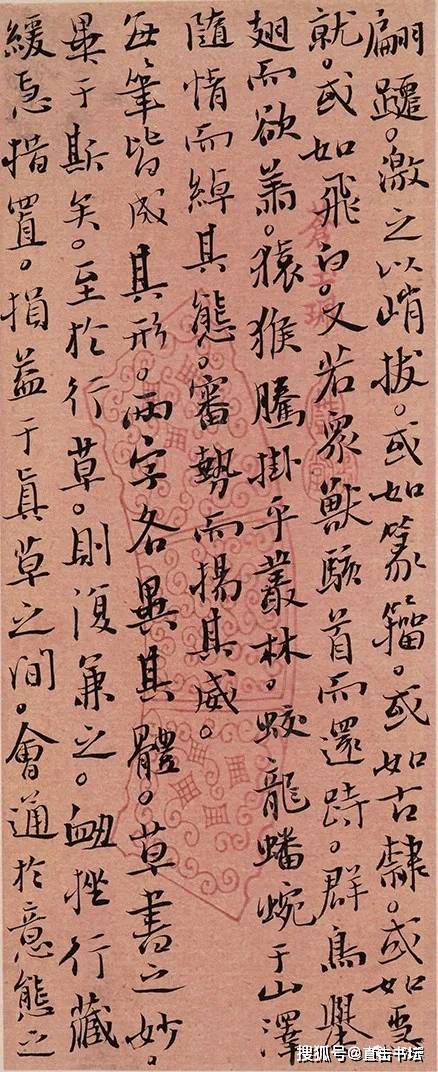 翩躚。激之以峭拔。或如篆籀。或如古隸。或如
就。或如飛白。又若眾獸駭首而還跱。群鳥舉
翅而欲翥。猿猴騰掛乎叢林。蛟龍蟠蜿于山澤
隨情而綽其態。審勢而揚其威。
每筆皆成其形。兩字各異其體。草書之妙。
畢于斯矣。至於行草。則復兼之。衄挫行藏
緩急措置。損益于眞草之間。會通於意態之
搜狐号@直击书坛